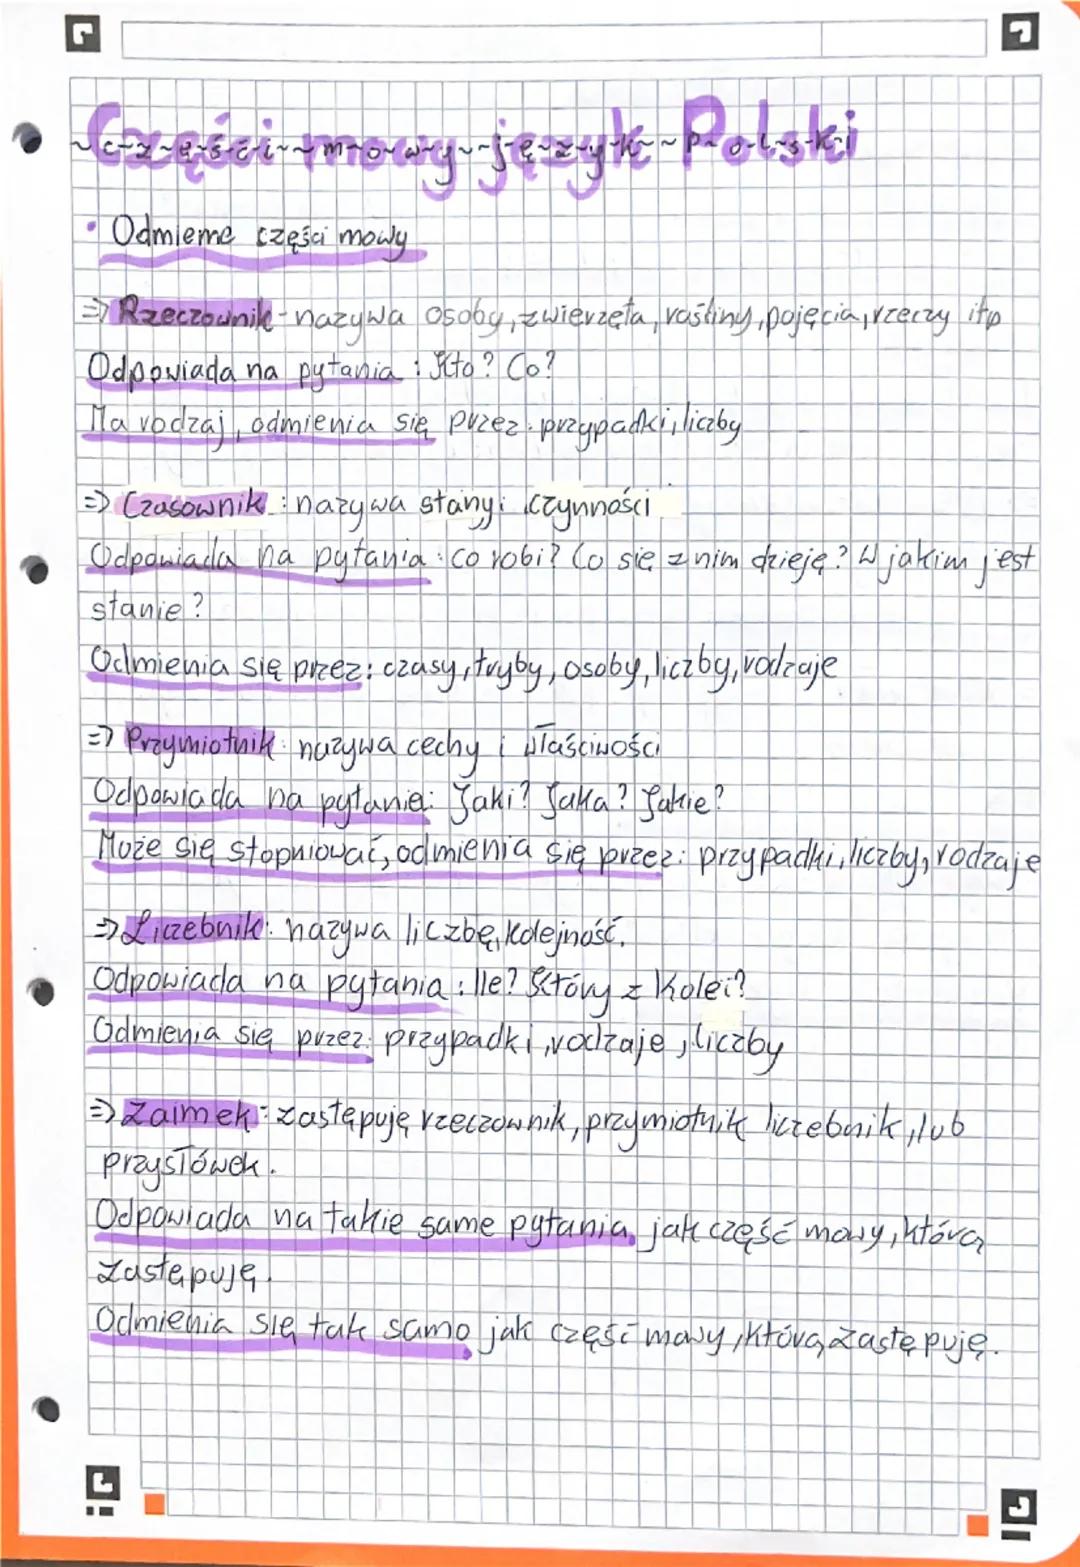 Części mowy język Polski
~c~z~ę~ś~c~i~~m~o~w~y~~j~ę~z~y~k~~P~o~l~s~k~i
• Odmienne części mowy
=> Rzeczownik - nazywa osoby, zwierzęta, rośliny, pojęcia, rzeczy itp
Odpowiada na pytania : Kto? Co?
Ma rodzaj, odmienia się przez: przypadki, liczby
=> Czasownik : nazywa stany i czynności
Odpowiada na pytania : co robi? Co się z nim dzieję? W jakim jest
stanie?
Odmienia się przez: czasy, tryby, osoby, liczby, rodzaje
=> Przymiotnik: nazywa cechy i właściwości
Odpowiada na pytanie: Jaki? Jaka? Jakie?
Może się stopniować, odmienia się przez: przypadki, liczby, rodzaje
=> Liczebnik: nazywa liczbę, kolejność.
Odpowiada na pytania : Ile? Który z kolei?
Odmienia się przez: przypadki, rodzaje, liczby
=> Zaimek: zastępuję rzeczownik, przymiotnik liczebnik, lub
przysłówek.
Odpowiada na takie same pytania, jak część mowy, którą
zastępuję.
Odmienia się tak samo jak część mowy, którą zastępuję.